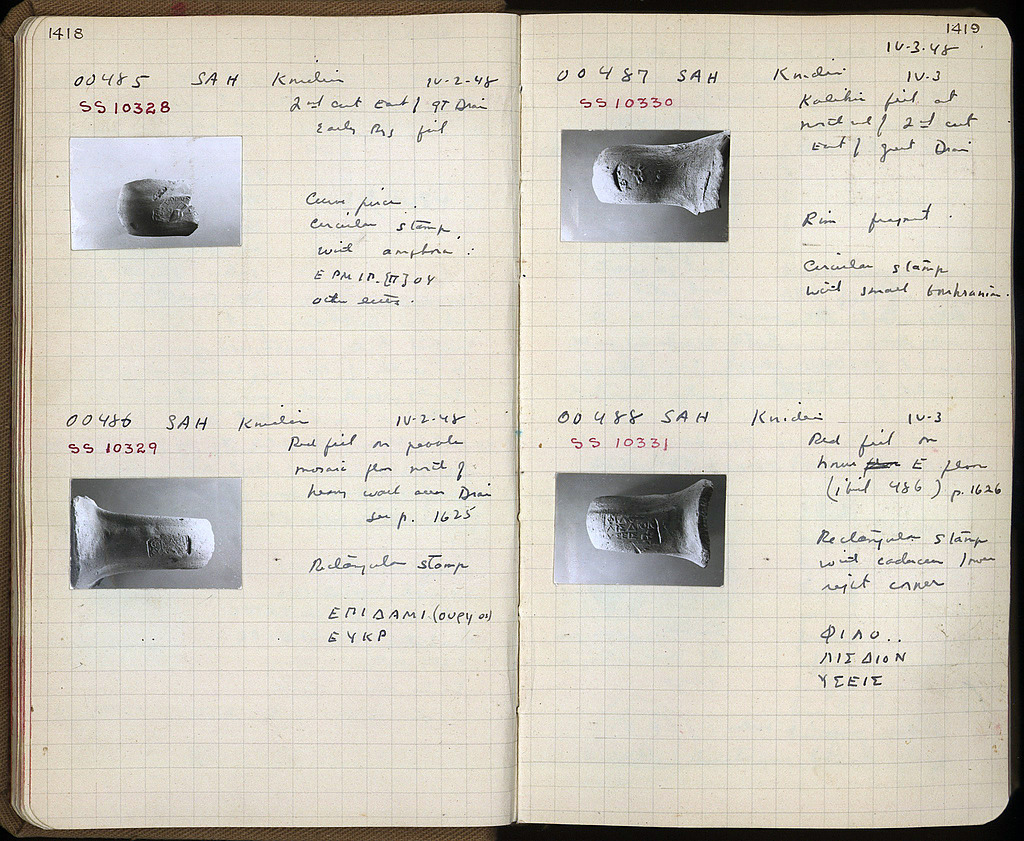 1418
OO 485 SAH Knidian IV-2-48
SS 10328
2nd cut East of gt Drain
Early Rs fill
Curve piece.
Circular stamp
with amphora:
ΕΡΜΙΠ.[Π]ΟΥ
OO 486 SAH Knidian IV-2-48
SS 10329
Red fill on pebble
mosaic floor north of
heavy wall over Drain
See p. 1625
Rectangular stamp
ΕΠΙΔΑΜΙ(ουργοι)
ΕΥΚΡ
1419
IV-3-48
OO 487 SAH Knidian IV-3
SS 10330
fill at
north end of 2nd cut
East of great Drain
Rim fragment.
Circular stamp
with small boukranion.
OO 488 SAH Knidian IV-3
SS 10331
Red fill on
house E floor
(ibid 486) p. 1626
Rectangular stamp
with caduceus lower
right corner
ΦΙΛΟ..
ΛΙΣΔΙΟΝ
ΥΣΕΙΣ